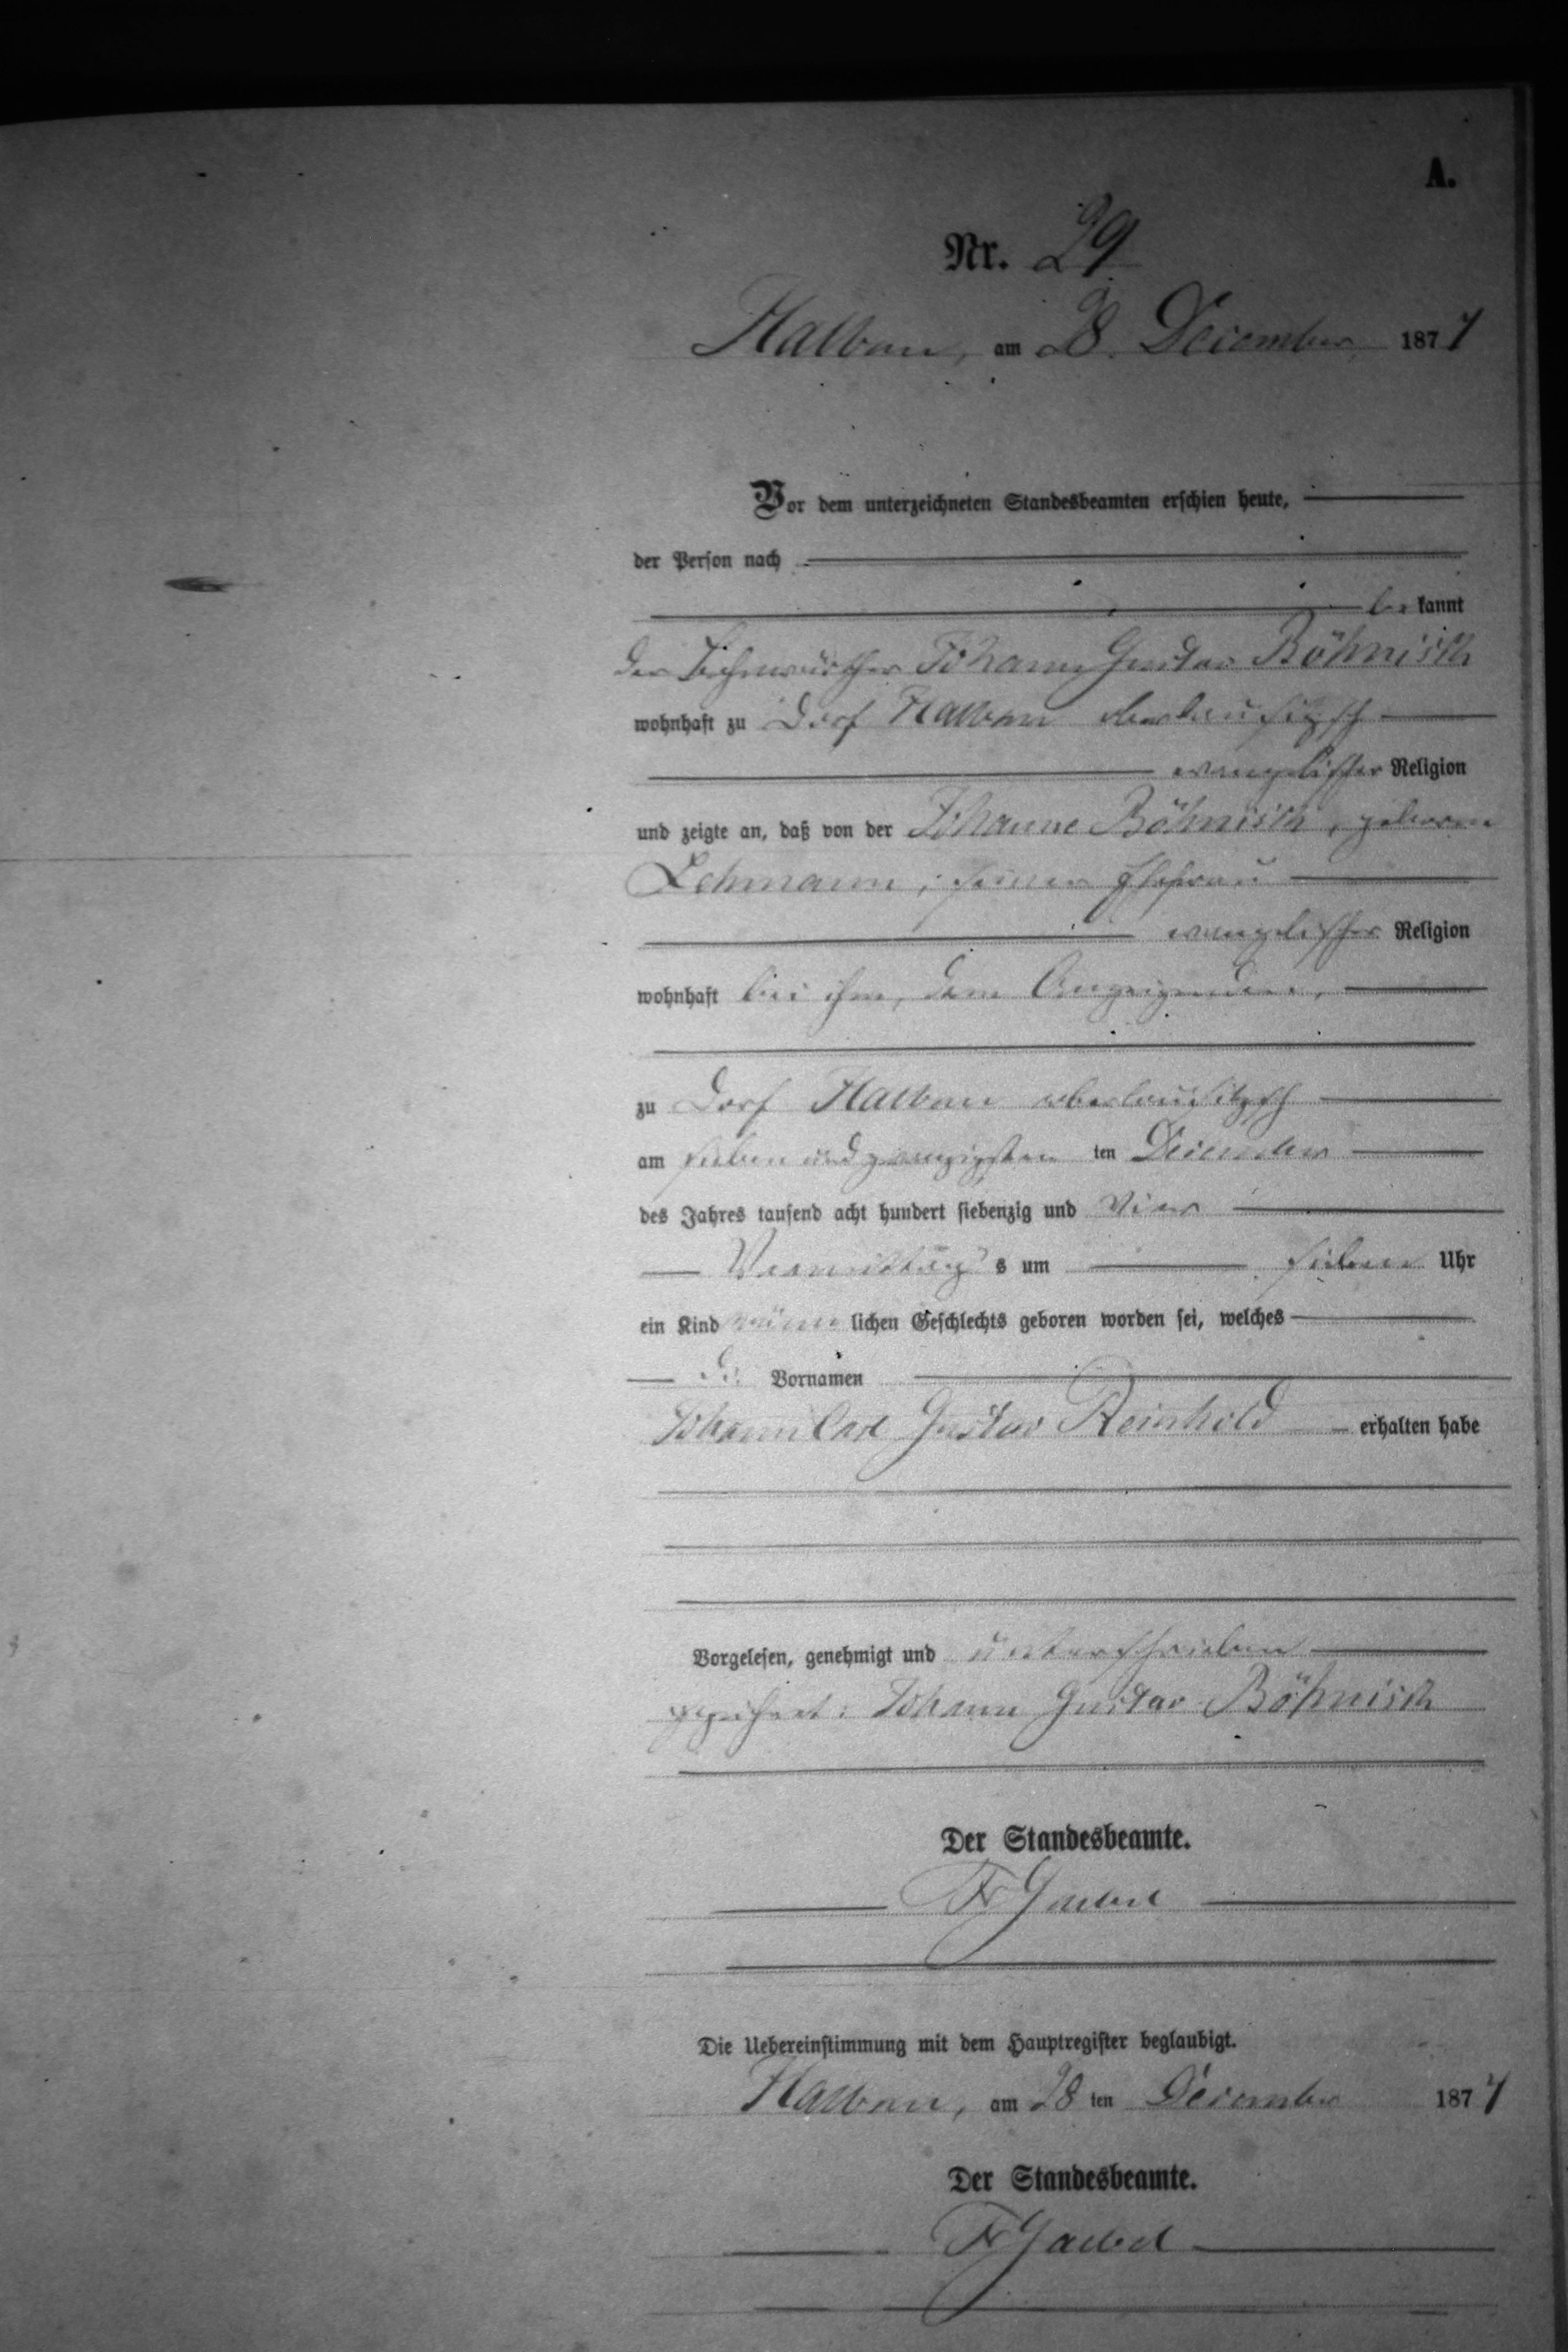 A.
Nr. 29
Halbau, am 28. December 1874
Vor dem unterzeichneten Standesbeamten erschien heute,
der Person nach
bekannt
der Johann Gustav Böhnisch
wohnhaft zu Dorf Halbau oberlausitzsch
evangelischer Religion
und zeigte an, daß von der Johanne Böhnisch, geborne
Lehmann, seiner Ehefrau
evangelischer Religion
wohnhaft bei ihm, dem Anzeigenden,
zu Dorf Halbau oberlausitzsch
am sieben und zwanzigsten ten December
des Jahres tausend acht hundert siebenzig und vier
Vormittags um sieben Uhr
ein Kind männlichen Geschlechts geboren worden sei, welches
die Vornamen
Johann Carl Gustav Reinhold erhalten habe
Vorgelesen, genehmigt und unterschrieben
gezeichnet: Johann Gustav Böhnisch
Der Standesbeamte.
Fr Gaebel
Die Uebereinstimmung mit dem Hauptregister beglaubigt.
Halbau, am 28 ten December 1874
Der Standesbeamte.
Fr Gaebel